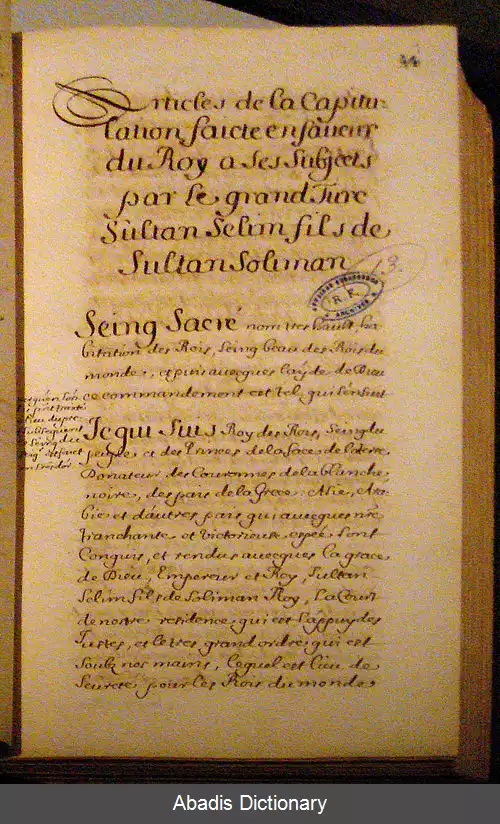 Articles de la Capitu-
lation faicte en faveur
du Roy a ses Subjects
par le grand Turc
Sultan Selim fils de
Sultan Soliman
R.F.
ARCHIVES
Seing Sacré nom tres hault, ha-
bitation des Rois, Seing beau des Rois du
monde, et puis avecques l'ayde de Dieu
ce commandement est tel qui s'ensuit
Je qui suis Roy des Rois, Seing du
peuple et des Princes de la face de la terre
Donateur des Couronnes de la blanche
noire, des pais de la Grece Asie, Ara-
bie et d'autres pais qui avecques nre
tranchante et victorieuse espée sont
Conquis, et rendus avecques la grace
de Dieu, Empereur et Roy, Sultan
Selim fils de Soliman Roy, La Court
de nostre residence qui est l'appuy des
Justes, et le tres grand ordre qui est
soubz nos mains, lequel est lieu de
Seureté pour les Rois du monde
Abadis Dictionary